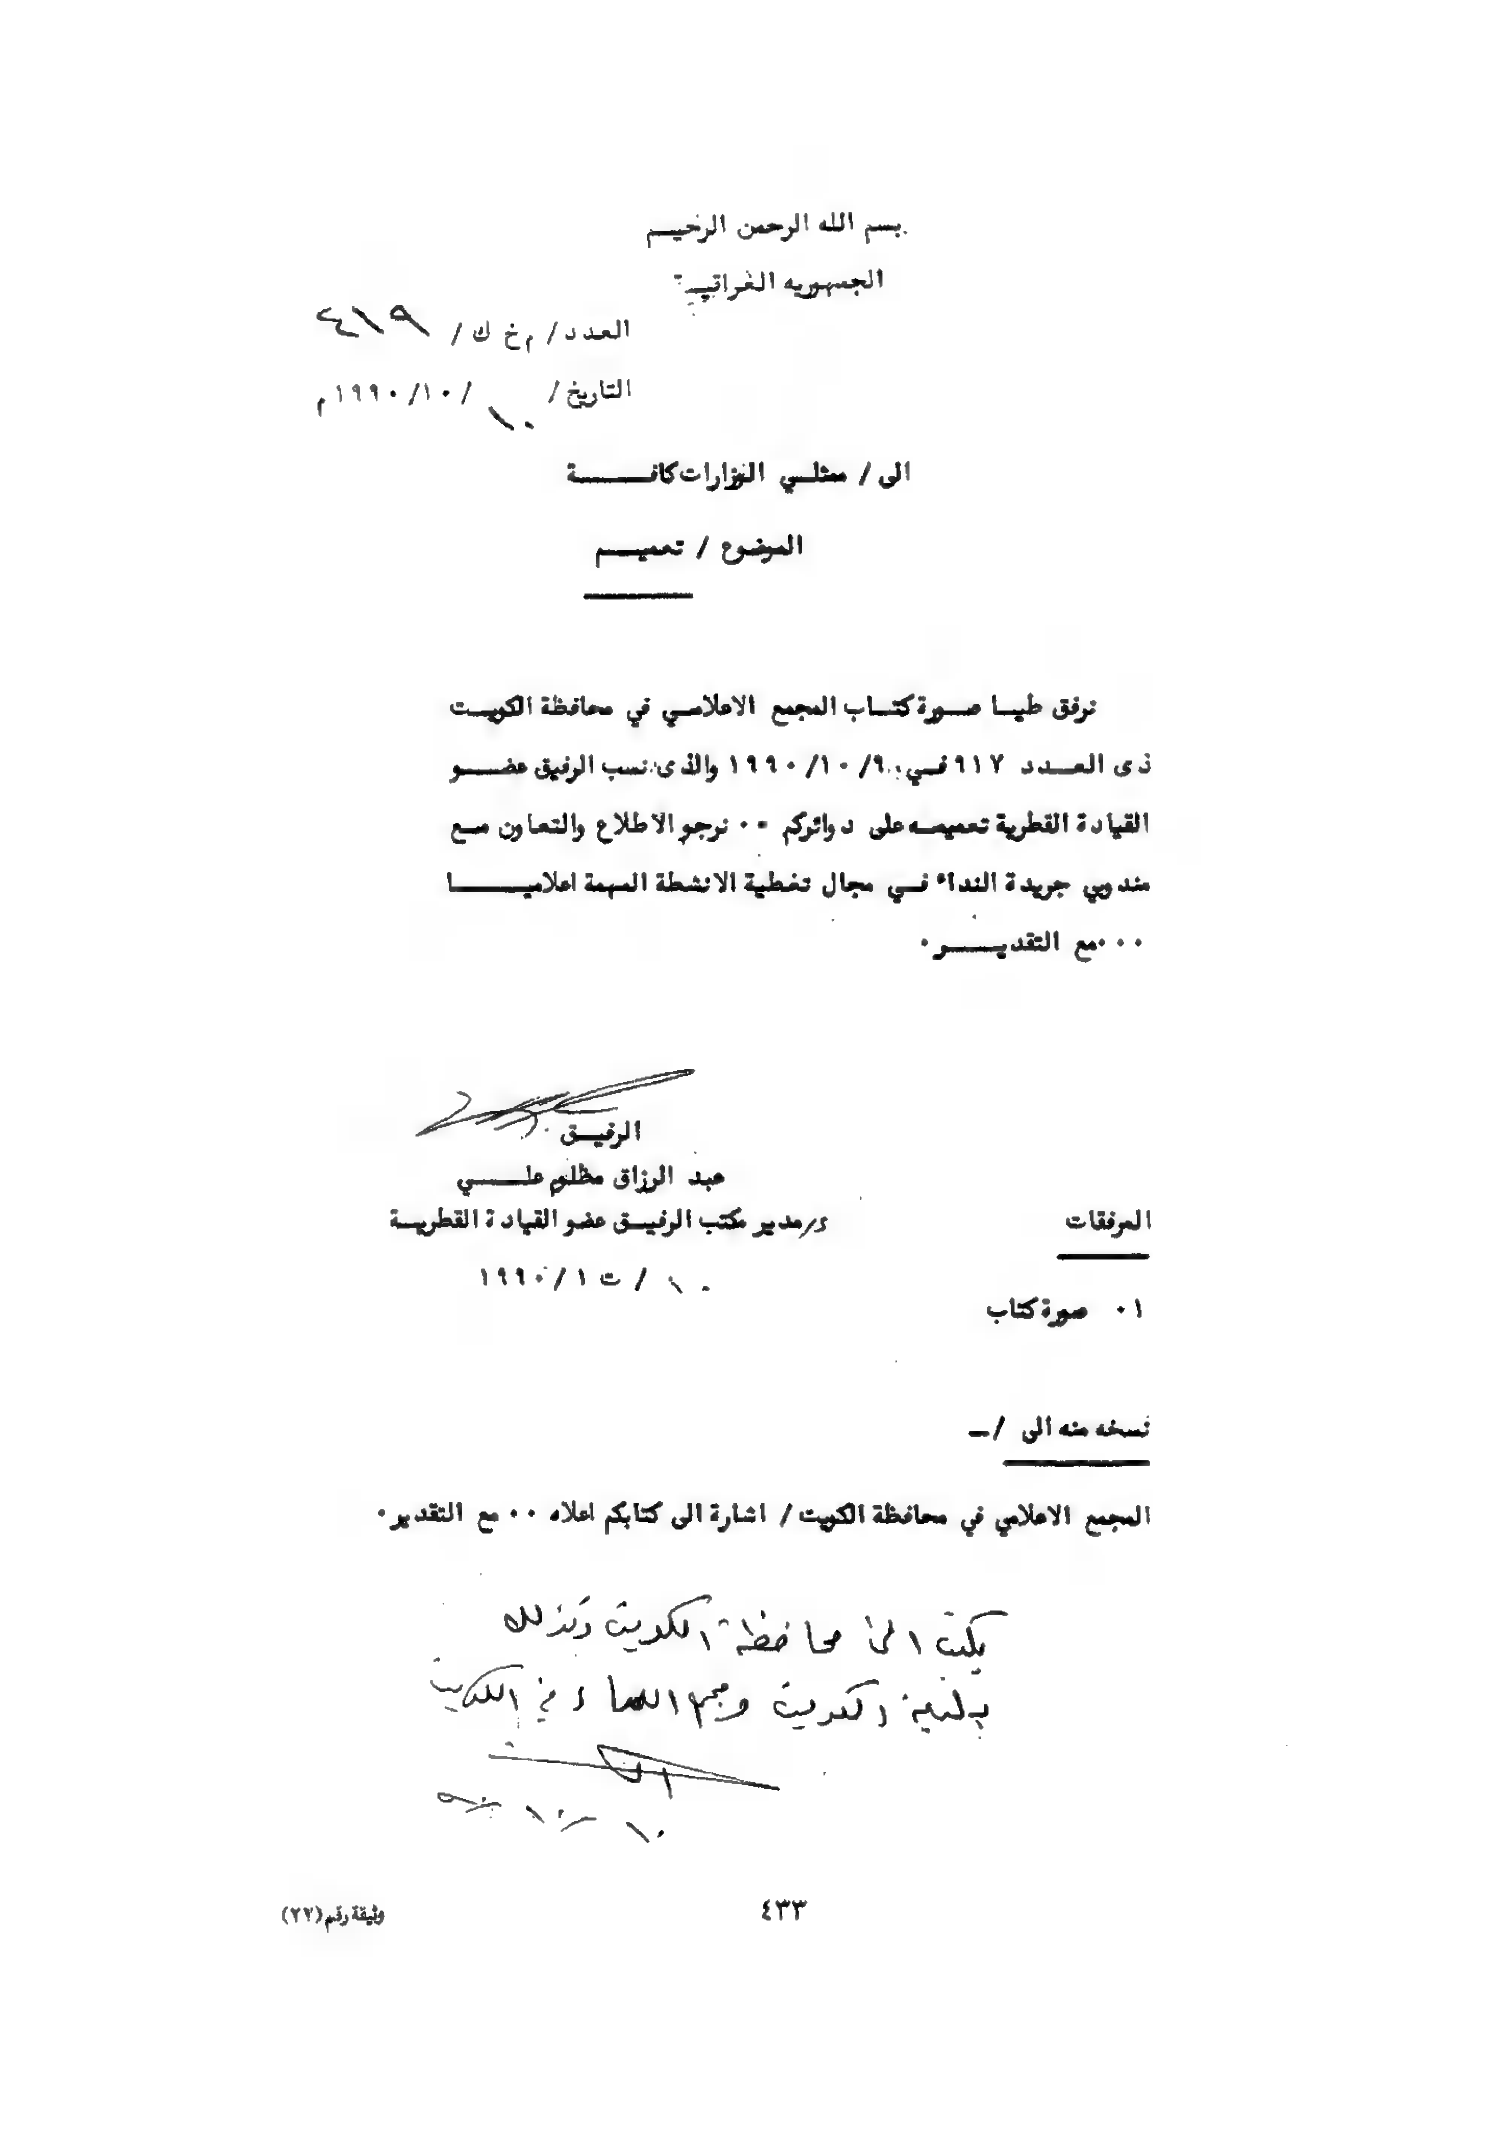 بسم الله الرحمن الرحيم
الجمهوريه العراقية
العدد/ م خ ك / ٤١٩
التاريخ/ ١٠ /١٩٩٠/١٠م
الى / ممثلي الوزارات كافة
الموضوع / تعميم
نرفق طيا صورة كتاب المجمع الاعلامي في محافظة الكويت
ذى العدد ٩١٧ في ١٩٩٠/١٠/٩ والذى نسب الرفيق عضو
القيادة القطرية تعميمه على دوائركم ٠٠ نرجو الاطلاع والتعاون مع
مندوبي جريدة النداء في مجال تغطية الانشطة المهمة اعلاميا
٠٠٠مع التقدير٠
الرفيق
عبد الرزاق مظلوم علي
ء/مدير مكتب الرفيق عضو القيادة القطرية
١٠ / ت ١ / ١٩٩٠
المرفقات
٠١ صورة كتاب
نسخه منه الى /ــ
المجمع الاعلامي في محافظة الكويت / اشارة الى كتابكم اعلاه ٠٠ مع التقدير٠
يكتب الى محافظة الكويت وكذلك
الكويت في الكويت
٤٣٣
وثيقة رقم (٢٢)